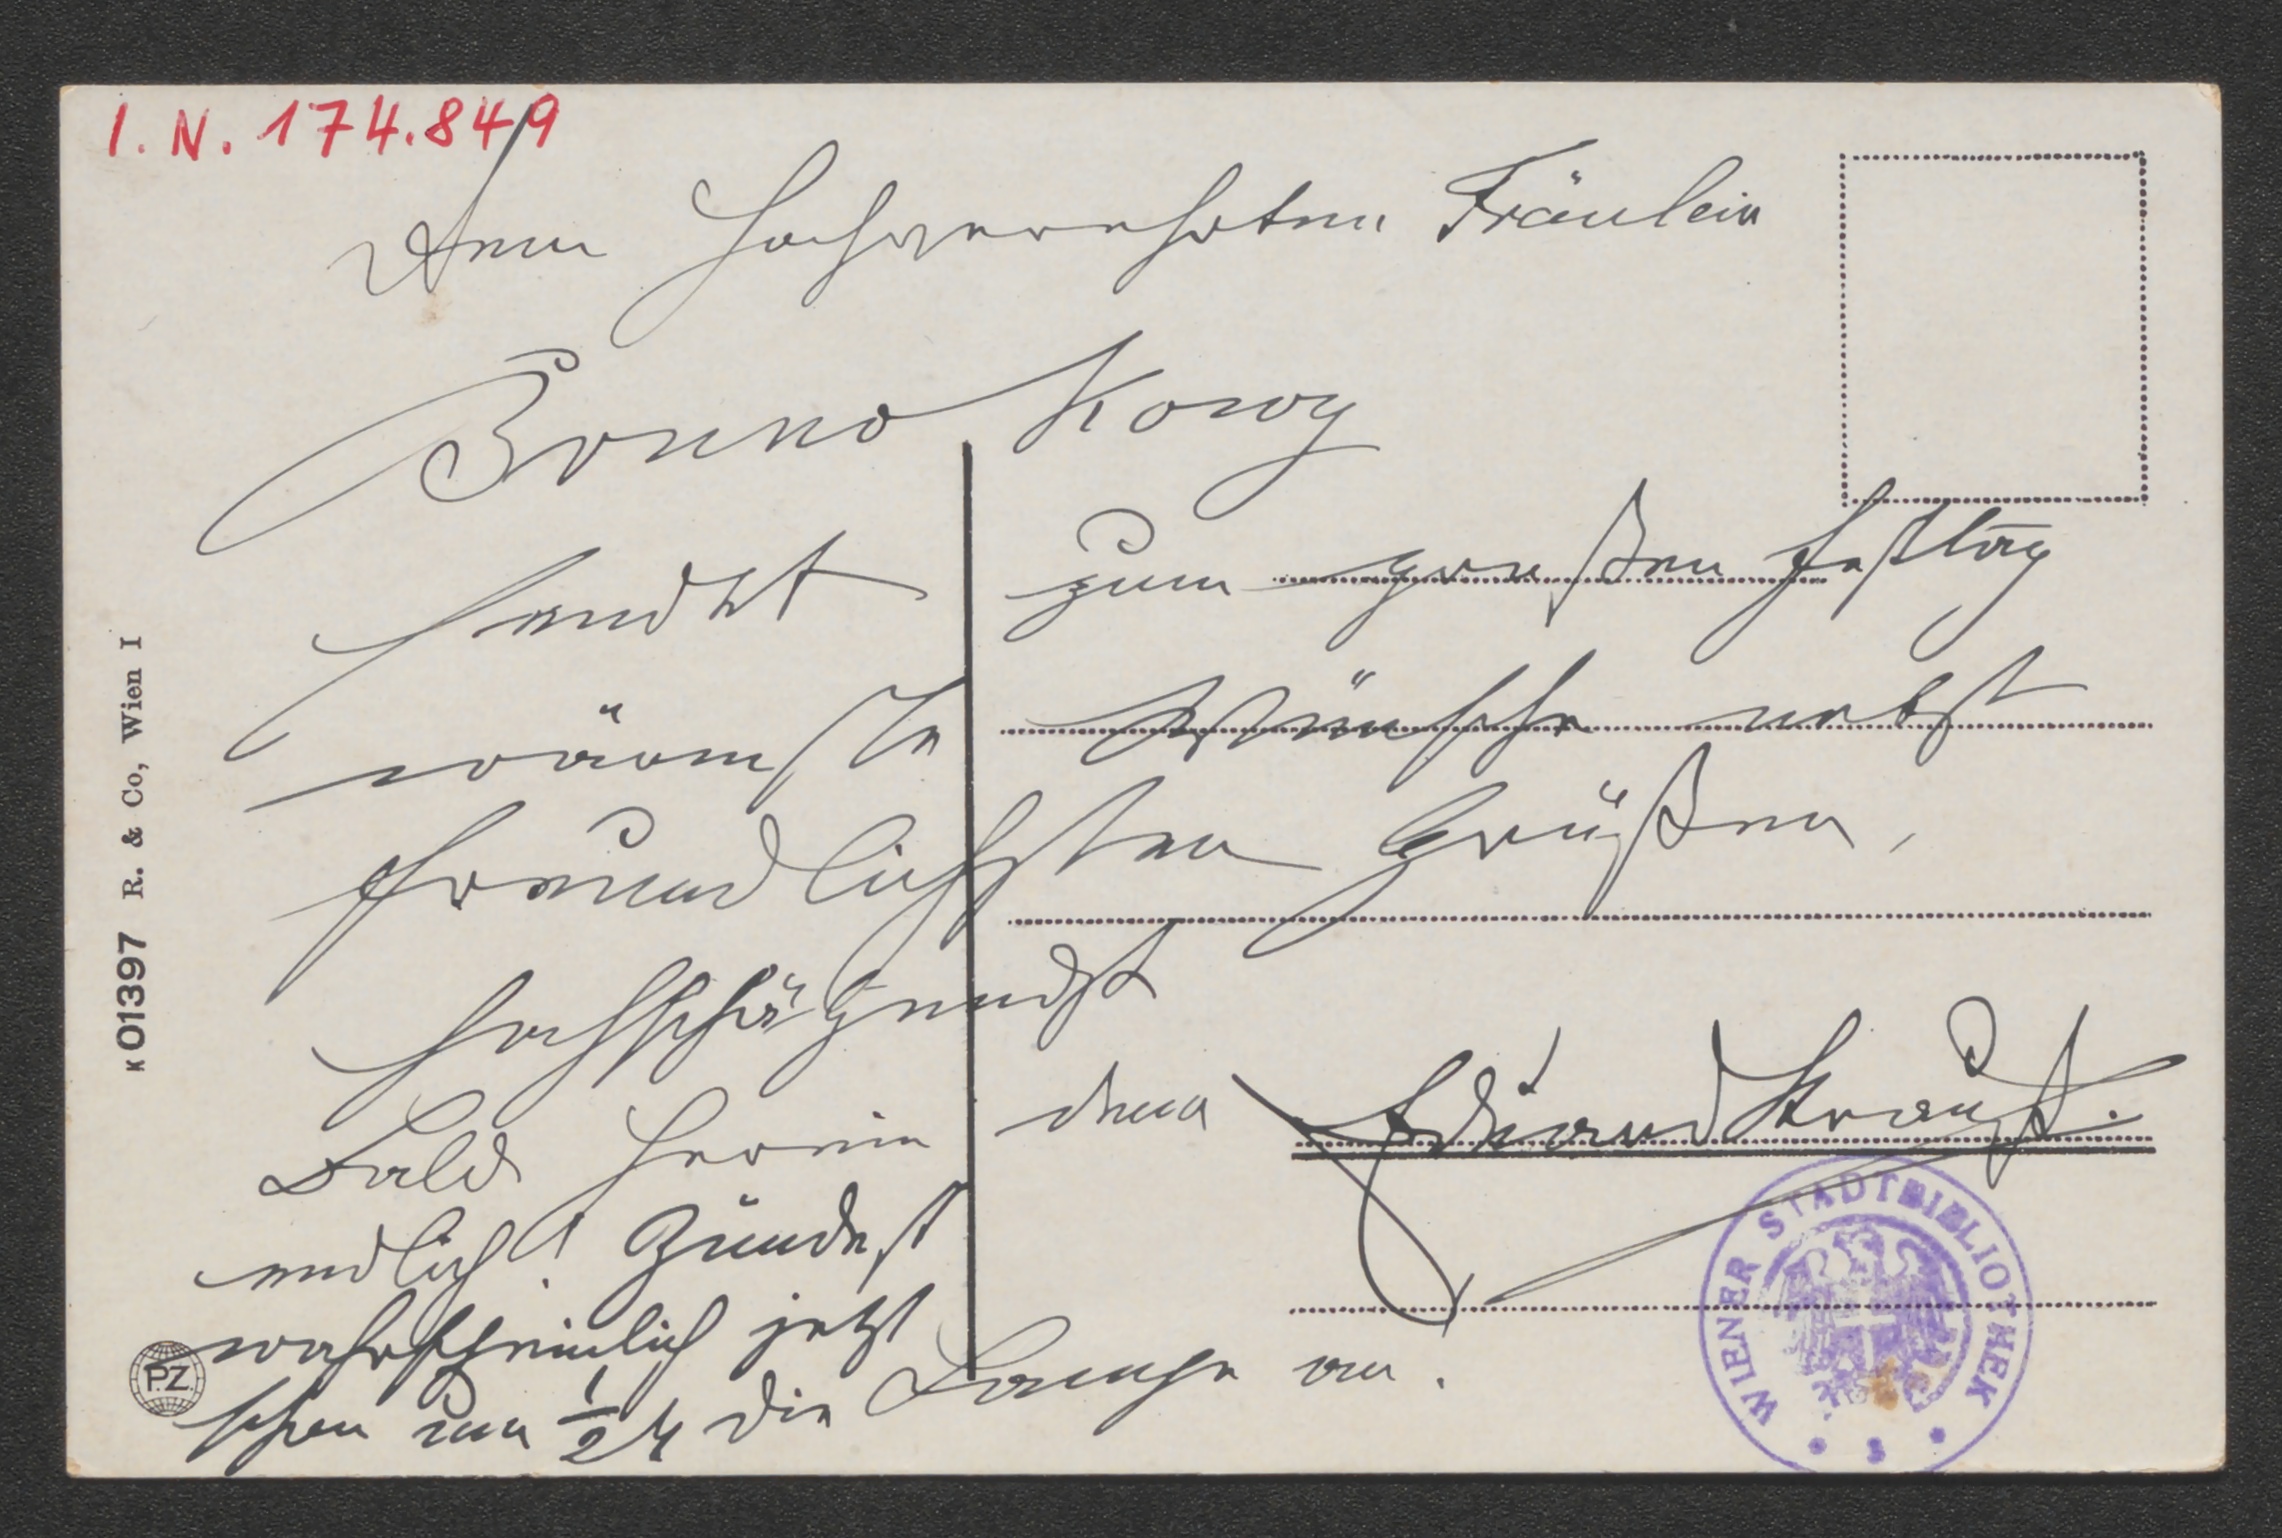 I. N. 174.849
Dem hochverehrten Fräulein
Bruno Kowy
sendet zum großen Festtag
wärmste Wünsche nebst
freundlichsten Grüßen,
hochschätzendst
Eduard Strauß.
Bald herein denn
endlich! Zündest
wahrscheinlich jetzt
schon um ½4 die Lampe an.
K 01397 R. & Co, Wien I
P.Z.
WIENER STADTBIBLIOTHEK